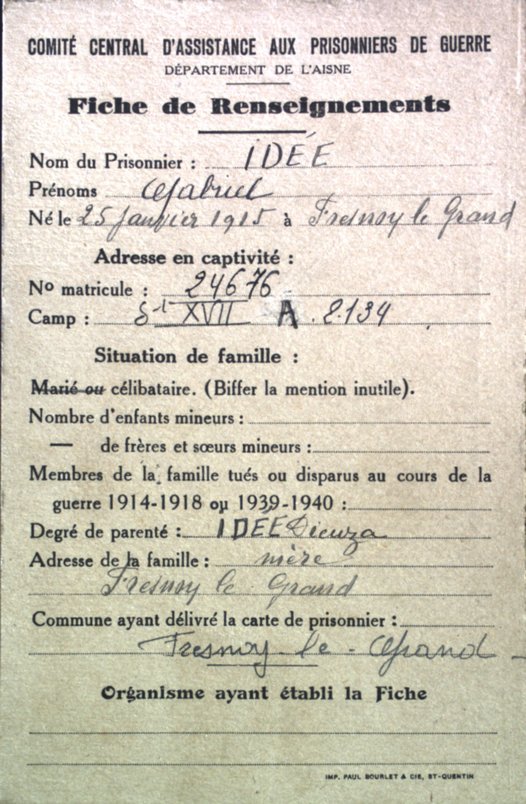 COMITÉ CENTRAL D'ASSISTANCE AUX PRISONNIERS DE GUERRE
DÉPARTEMENT DE L'AISNE
Fiche de Renseignements
Nom du Prisonnier : IDÉE
Prénoms Gabriel
Né le 25 Janvier 1915 à Fresnoy le Grand
Adresse en captivité :
No matricule : 24676
Camp : XVII A . 2.134
Situation de famille :
Marié ou célibataire. (Biffer la mention inutile).
Nombre d'enfants mineurs :
— de frères et sœurs mineurs :
Membres de la famille tués ou disparus au cours de la
guerre 1914-1918 ou 1939-1940 :
Degré de parenté : IDÉE
Adresse de la famille : mère
Fresnoy le Grand
Commune ayant délivré la carte de prisonnier :
Fresnoy - le - Grand
Organisme ayant établi la Fiche
IMP. PAUL BOURLET & CIE, ST-QUENTIN